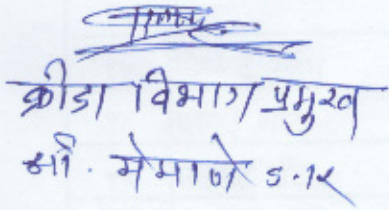 क्रीडा विभाग प्रमुख
श्री. मेमाणे